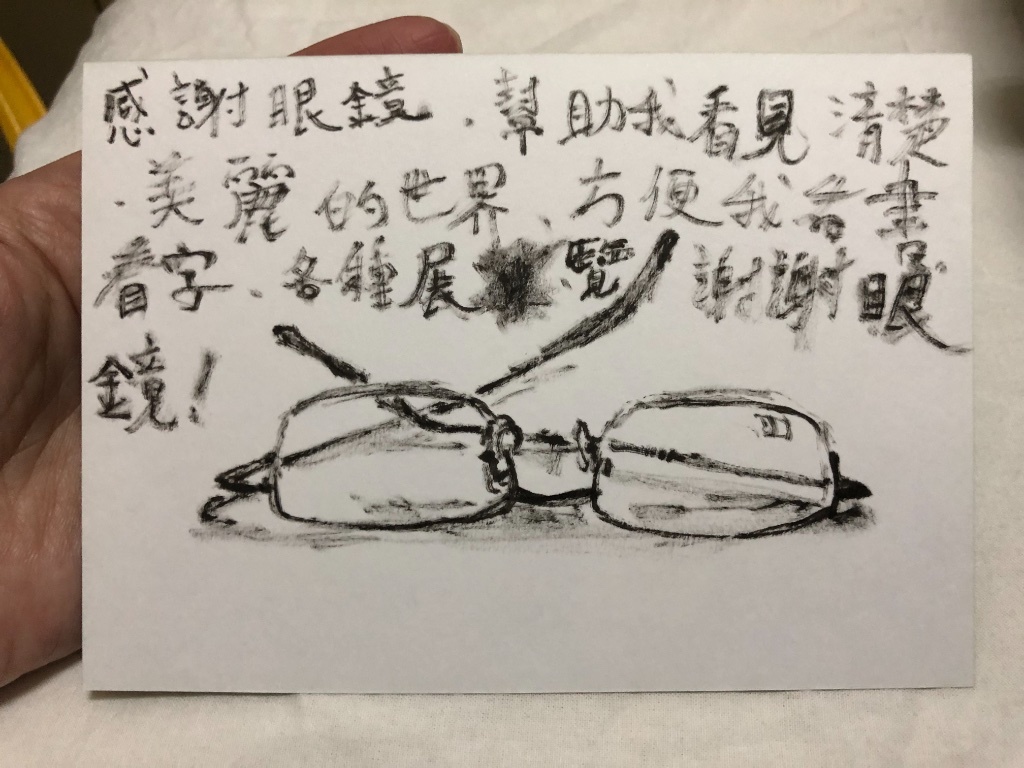 感謝眼鏡．幫助我看見清楚
．美麗的世界、方便我看書
看字、各種展覽 謝謝眼
鏡！